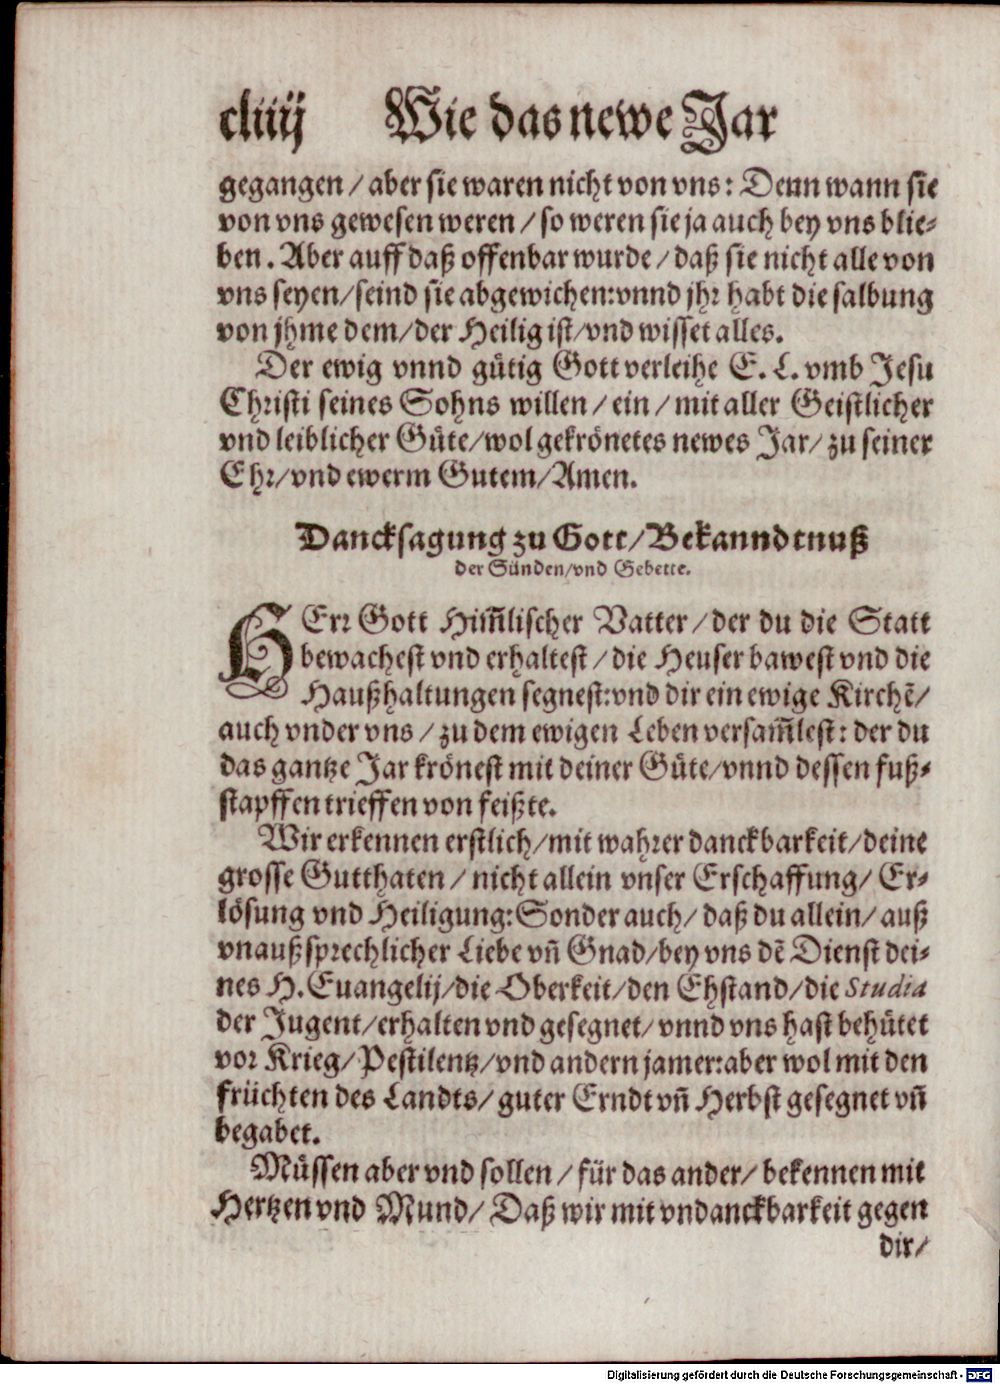 cliiij Wie das newe Jar
gegangen / aber sie waren nicht von vns: Denn wann sie
von vns gewesen weren / so weren sie ja auch bey vns blie-
ben. Aber auff daß offenbar wurde / daß sie nicht alle von
vns seyen/seind sie abgewichen:vnnd jhr habt die salbung
von jhme dem/der Heilig ist/vnd wisset alles.
Der ewig vnnd gütig Gott verleihe E. L. vmb Jesu
Christi seines Sohns willen / ein / mit aller Geistlicher
vnd leiblicher Güte/wol gekrönetes newes Jar/ zu seiner
Ehr/vnd ewerm Gutem/Amen.
Dancksagung zu Gott/Bekanndtnuß
der Sünden/vnd Gebette.
HErr Gott Him̃lischer Vatter / der du die Statt
bewachest vnd erhaltest / die Heuser bawest vnd die
Haußhaltungen segnest:vnd dir ein ewige Kirchẽ/
auch vnder vns / zu dem ewigen Leben versam̃lest: der du
das gantze Jar krönest mit deiner Güte/vnnd dessen fuß-
stapffen trieffen von feißte.
Wir erkennen erstlich/mit wahrer danckbarkeit/deine
grosse Gutthaten / nicht allein vnser Erschaffung/ Er-
lösung vnd Heiligung:Sonder auch/ daß du allein/ auß
vnaußsprechlicher Liebe vñ Gnad/bey vns dẽ Dienst dei-
nes H. Euangelij/die Oberkeit/den Ehstand/die Studia
der Jugent/erhalten vnd gesegnet/ vnnd vns hast behütet
vor Krieg/Pestilentz/vnd andern jamer:aber wol mit den
früchten des Landts/ guter Erndt vñ Herbst gesegnet vñ
begabet.
Müssen aber vnd sollen / für das ander/ bekennen mit
Hertzen vnd Mund/ Daß wir mit vndanckbarkeit gegen
dir/
Digitalisierung gefördert durch die Deutsche Forschungsgemeinschaft - DFG